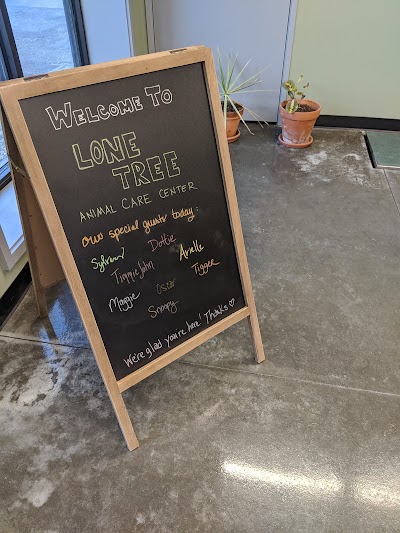 WELCOME TO
LONE
TREE
ANIMAL CARE CENTER
our special guests today:
Sylvan Dottie
Timmie John Arielle
Maggie Oscar Tigger
Snoopy
We're glad you're here! Thanks ♡